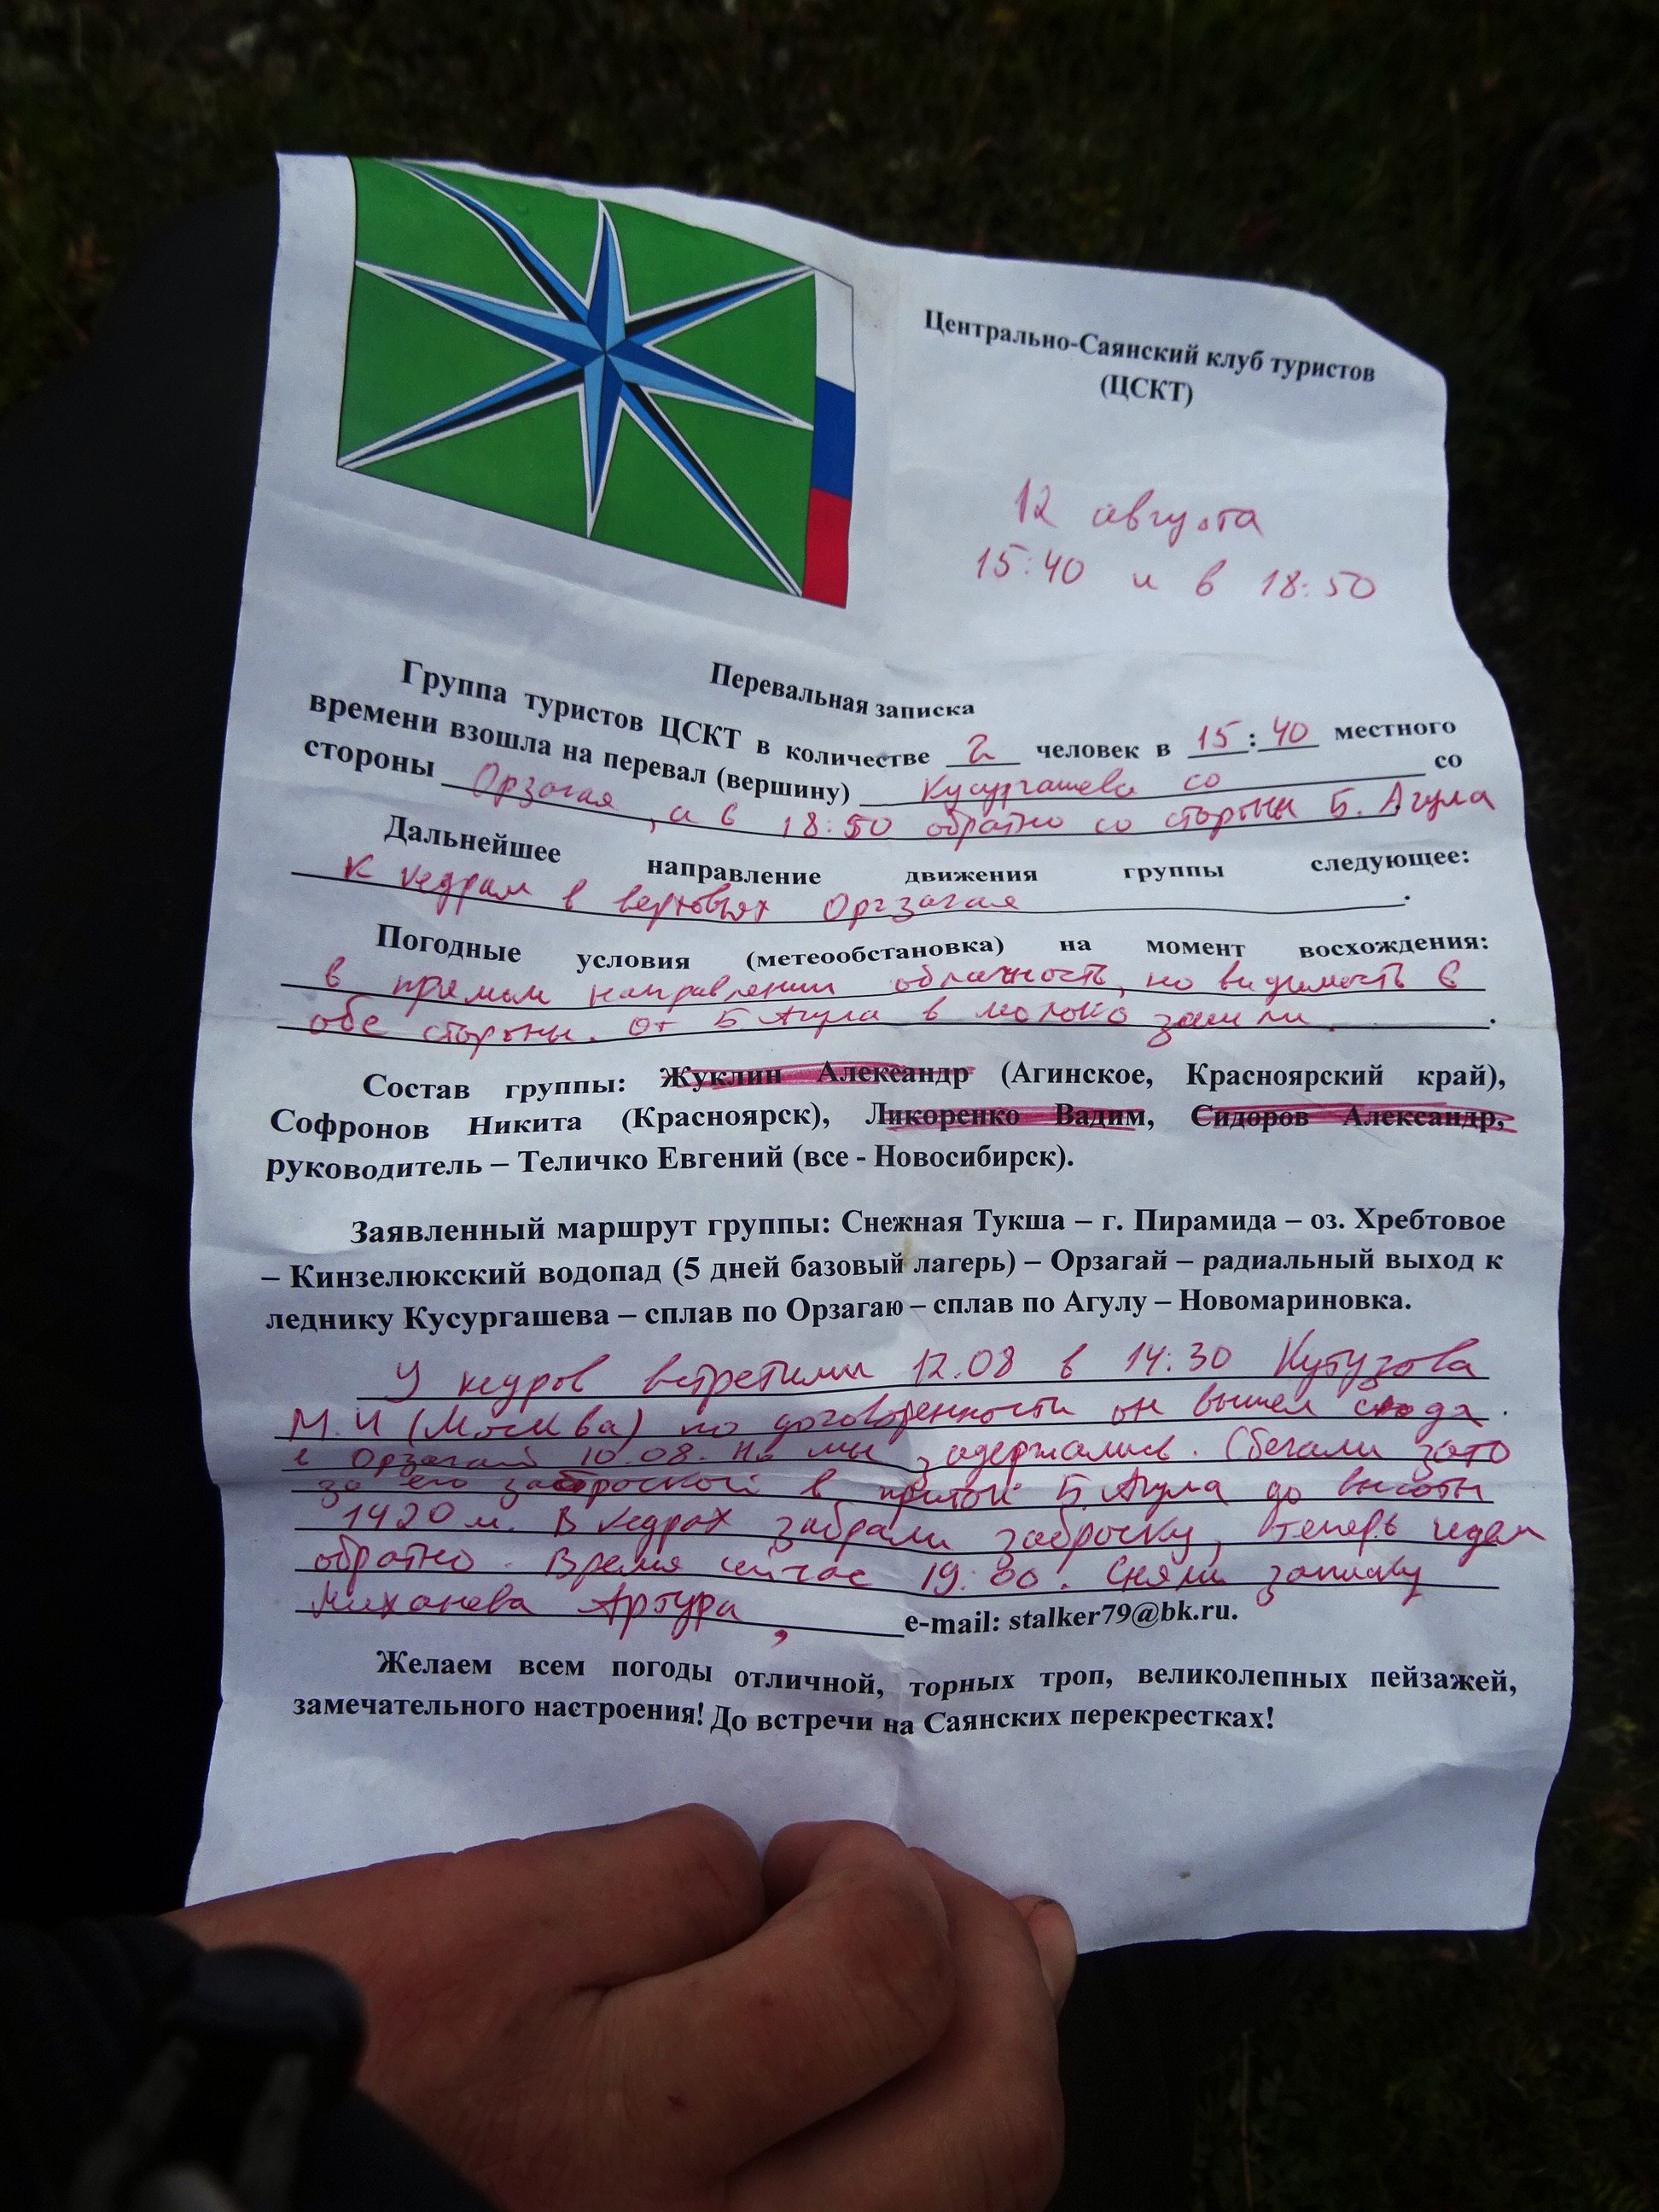 Центрально-Саянский клуб туристов
(ЦСКТ)
12 августа
15:40 и в 18:50
Перевальная записка
Группа туристов ЦСКТ в количестве 2 человек в 15:40 местного
времени взошла на перевал (вершину) Кусургашева со со
стороны Орзагая, а в 18:50 обратно со стороны Б. Агула
Дальнейшее направление движения группы следующее:
К кедрам в верховьях Орзагая .
Погодные условия (метеообстановка) на момент восхождения:
в прямом направлении облачность, но видимость в
обе стороны. От Б Агула в молоко зашли .
Состав группы: Жуклин Александр (Агинское, Красноярский край),
Софронов Никита (Красноярск), Ликоренко Вадим, Сидоров Александр,
руководитель – Теличко Евгений (все - Новосибирск).
Заявленный маршрут группы: Снежная Тукша – г. Пирамида – оз. Хребтовое
– Кинзелюкский водопад (5 дней базовый лагерь) – Орзагай – радиальный выход к
леднику Кусургашева – сплав по Орзагаю – сплав по Агулу – Новомариновка.
У кедров встретили 12.08 в 14:30 Кутузова
М.И (Москва) по договоренности он вышел сюда
Орзагай 10.08. Но мы задержались. Сбегали зато
за его заброской в приток Б Агула до высоты
1420 м. В кедрах забрали заброску, теперь идем
обратно. Время сейчас 19:00. Сняли записку
Миханева Артура, e-mail: stalker79@bk.ru.
Желаем всем погоды отличной, торных троп, великолепных пейзажей,
замечательного настроения! До встречи на Саянских перекрестках!